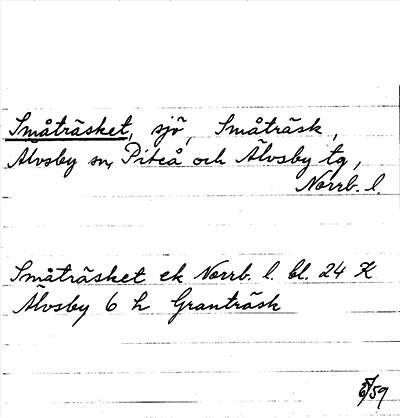 Småträsket, sjö, Småträsk,
Älvsby sn, Piteå och Älvsby tg,
Norrb. l.
Småträsket ek Norrb. l. bl. 24 K
Älvsby 6 h Granträsk
/59